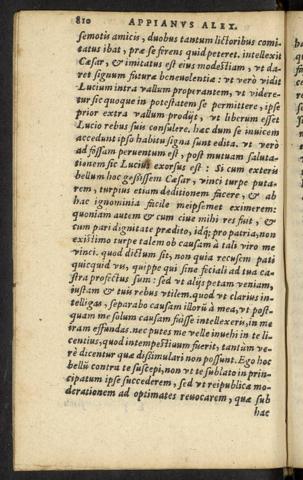 810 APPIANVS ALEX.
semotis amicis, duobus tantum lictoribus comi
tatus ibat, præ se ferens quid peteret. intellexit
Cæsar, & imitatus est eius modestiam, vt da-
ret signum futuræ beneuolentiæ: vt verò vidit
Lucium intra vallum properantem, vt videre-
tur sic quoque in potestatem se permittere, ipse
prior extra vallum prodijt, vt liberum esset
Lucio rebus suis consulere. hac dum se inuicem
accedunt ipso habitu signa sunt edita. vt verò
ad fossam peruentum est, post mutuam saluta-
tionem sic Lucius exorsus est: Si cum exteris
bellum hoc gessissem Cæsar, vinci turpe puta-
rem, turpius etiam deditionem facere, & ab
hac ignominia facile meipsemet eximerem:
quoniam autem & cum ciue mihi res fuit, &
cum pari dignitate prædito, idq; pro patria, non
existimo turpe talem ob causam à tali viro me
vinci. quod dictum sit, non quia recusem pati
quicquid vis, quippe qui sine feciali ad tua ca-
stra profectus sum: sed vt alijs petam veniam,
iustam & tuis rebus vtilem. quod vt clarius in-
telligas, separabo causam illorū à mea, vt post-
quam me solum causam fuisse intellexeris, in me
iram effundas. nec putes me velle inuehi in te li-
centius, quod intempestiuum fuerit, tantùm ve-
rè dicentur quæ dissimulari non possunt. Ego hoc
bellū contra te suscepi, non vt te sublato in prin-
cipatum ipse succederem, sed vt reipublicæ mo-
derationem ad optimates reuocarem, quæ sub
hac